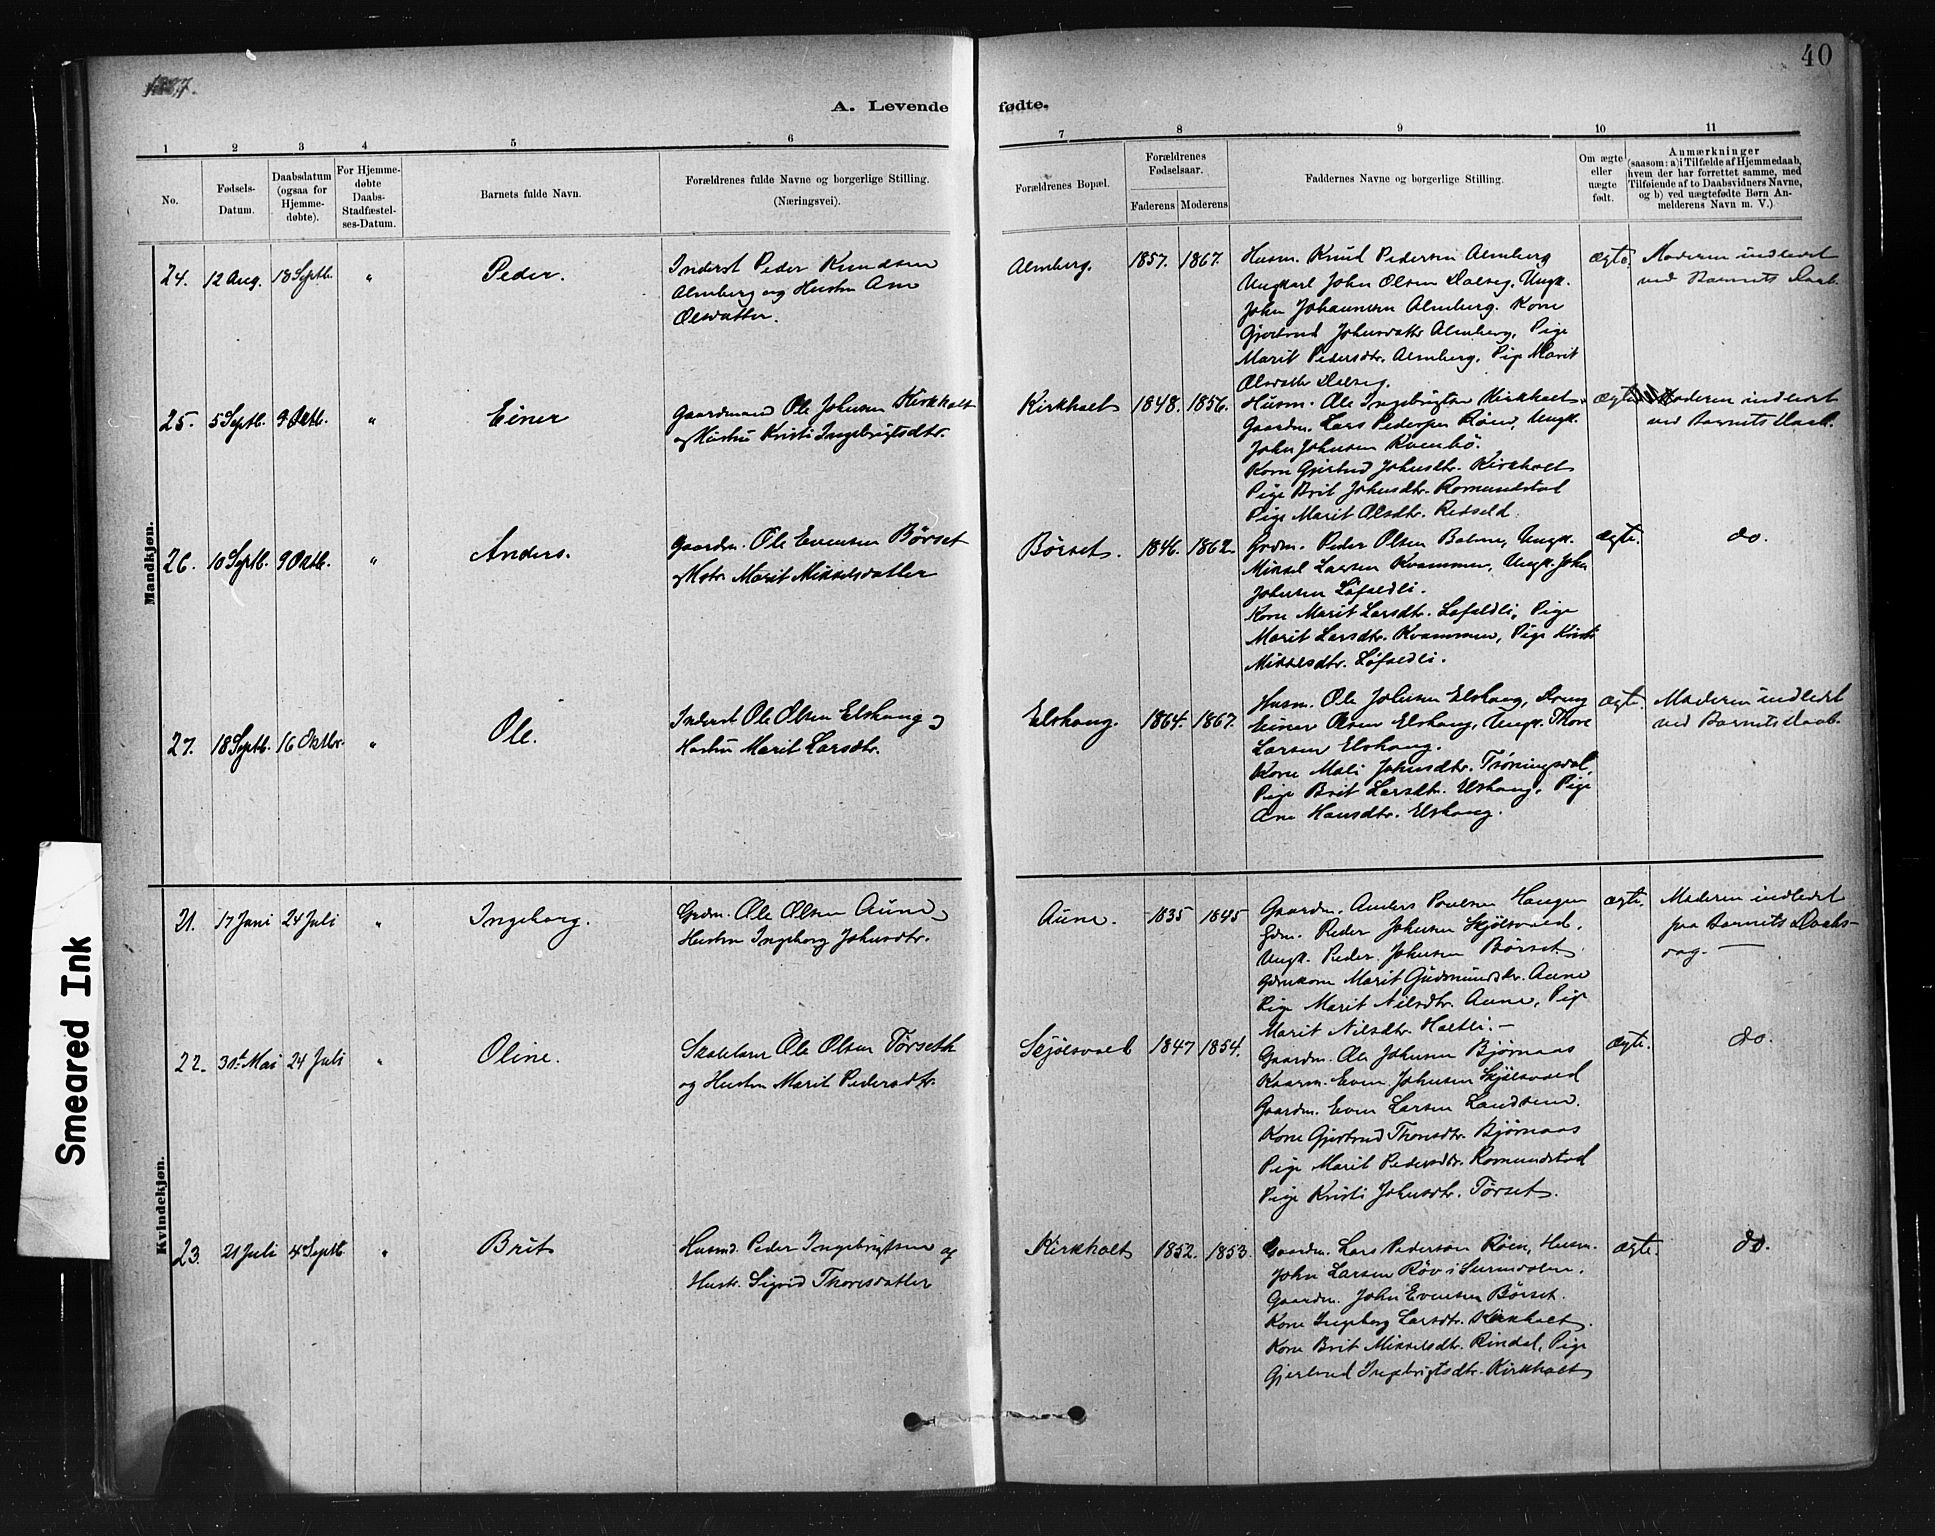 1887.
40
A. Levende fødte.
1 2 3 4 5 6 7 8 9 10 11
No.
Fødsels-
Datum.
Daabsdatum
(ogsaa for
Hjemme-
døbte).
For Hjemme-
døbte
Daabs-
Stadfæstel-
ses-Datum.
Barnets fulde Navn.
Forældrenes fulde Navne og borgerlige Stilling.
(Næringsvei).
Forældrenes Bopæl.
Forældrenes
Fødselsaar.
Faderens Moderens
Faddernes Navne og borgerlige Stilling.
Om ægte
eller
uægte
født.
Anmærkninger
(saasom: a) i Tilfælde af Hjemmedaab,
hvem der har forrettet samme, med
Tilføiende af to Daabsvidners Navne,
og b) ved uægtefødte Børn An-
melderens Navn m. V.)
Mandkjøn.
24. 12 Aug. 18 Septb. " Peder.
Inderst Peder Knudsen
Almberg og Hustru Ane
Olsdatter.
Almberg. 1857. 1867.
Husm. Knud Pedersen Almberg
Ungkarl John Olsen Dalseg, Ungk.
John Johannesen Almberg. Kone
Gjertrud Johnsdatter Almberg, Pige
Marit Pedersdtr. Almberg, Pige Marit
Olsdatter Dalseg.
ægte.
Moderen indledet
ved Barnets Daab.
25. 5 Septb. 9 Oktb. " Einer
Gaardmand Ole Johnsen Kirkholt
og Hustru Kristi Ingebrigtsdtr.
Kirkholt 1848. 1856.
Husm. Ole Ingebrigtsen Kirkholt.
Gaardm. Lars Pedersen Røen, Ungk.
John Johnsen Kvenbø.
Kone Gjertrud Johnsdtr. Kirkholt
Pige Brit Johnsdtr. Romundstad
Pige Marit Olsdtr.
ægte
Moderen indledet
ved Barnets Daab.
26. 10 Septb. 9 Oktb. " Anders.
Gaardm. Ole Evensen Børset
og Hstr. Marit Mikkelsdatter
Børset. 1846. 1862.
Grdm. Peder Olsen Bolme, Ungk.
Mikkel Larsen Kvammen, Ungk. John
Johnsen Løfaldli.
Kone Marit Larsdtr. Løfaldli, Pige
Marit Larsdtr. Kvammen, Pige Kristi
Mikkelsdtr. Løfaldli.
ægte.
do.
27. 18 Septb. 16 Oktbr. " Ole.
Inderst Ole Olsen Elshaug og
Hustru Marit Larsdtr.
Elshaug. 1864. 1867.
Husm. Ole Johnsen Elshaug, Dreng
Einer Olsen Elshaug, Ungk. Thore
Larsen Elshaug.
Kone Mali Johnsdtr. Trøningsdal,
Pige Brit Larsdtr. Elshaug, Pige
Ane Hansdtr. Elshaug.
ægte.
Moderen indledet
ved Barnets Daab.
Kvindekjøn.
21. 17 Juni 24 Juli " Ingeborg.
Grdm. Ole Olsen Aune,
Hustru Ingeborg Johnsdtr.
Aune. 1835 1845
Gaardm. Anders Poulsen Haugen
Gdm. Peder Johnsen Skjølsvold.
Ungk. Peder Johnsen Børset.
Gdmkone Marit Gudmundsdtr. Aune
Pige Marit Nilsdtr. Aune, Pige
Marit Nilsdtr. Holtli. —
ægte.
Moderen indledet
paa Barnets Daabs-
dag. —
22. 30te Mai 24 Juli " Oline.
Skolelærer Ole Olsen Tørseth
og Hustru Marit Pedersdtr.
Skjølsvold 1847 1854.
Gaardm. Ole Johnsen Bjørnaas
Kaarm. Even Johnsen Skjølsvold
Gaardm. Even Larsen Landsem.
Kone Gjertrud Thoresdtr. Bjørnaas
Pige Marit Pedersdtr. Romundstad
Pige Kristi Johnsdtr. Tørset.
ægte.
do.
23. 21 Juli 4 Septb. " Brit
Husmd. Peder Ingebrigtsen og
Hustr. Sigrid Thoresdatter
Kirkholt 1852. 1853.
Gaardm. Lars Pedersen Røen, Husm.
John Larsen Røv i Surendalen.
Gaardm. John Evensen Børset.
Kone Ingeborg Larsdtr. Kirkholt.
Kone Brit Mikkelsdtr. Rindal, Pige
Gjertrud Ingebrigtsdtr. Kirkholt
ægte.
do.
Smeared Ink